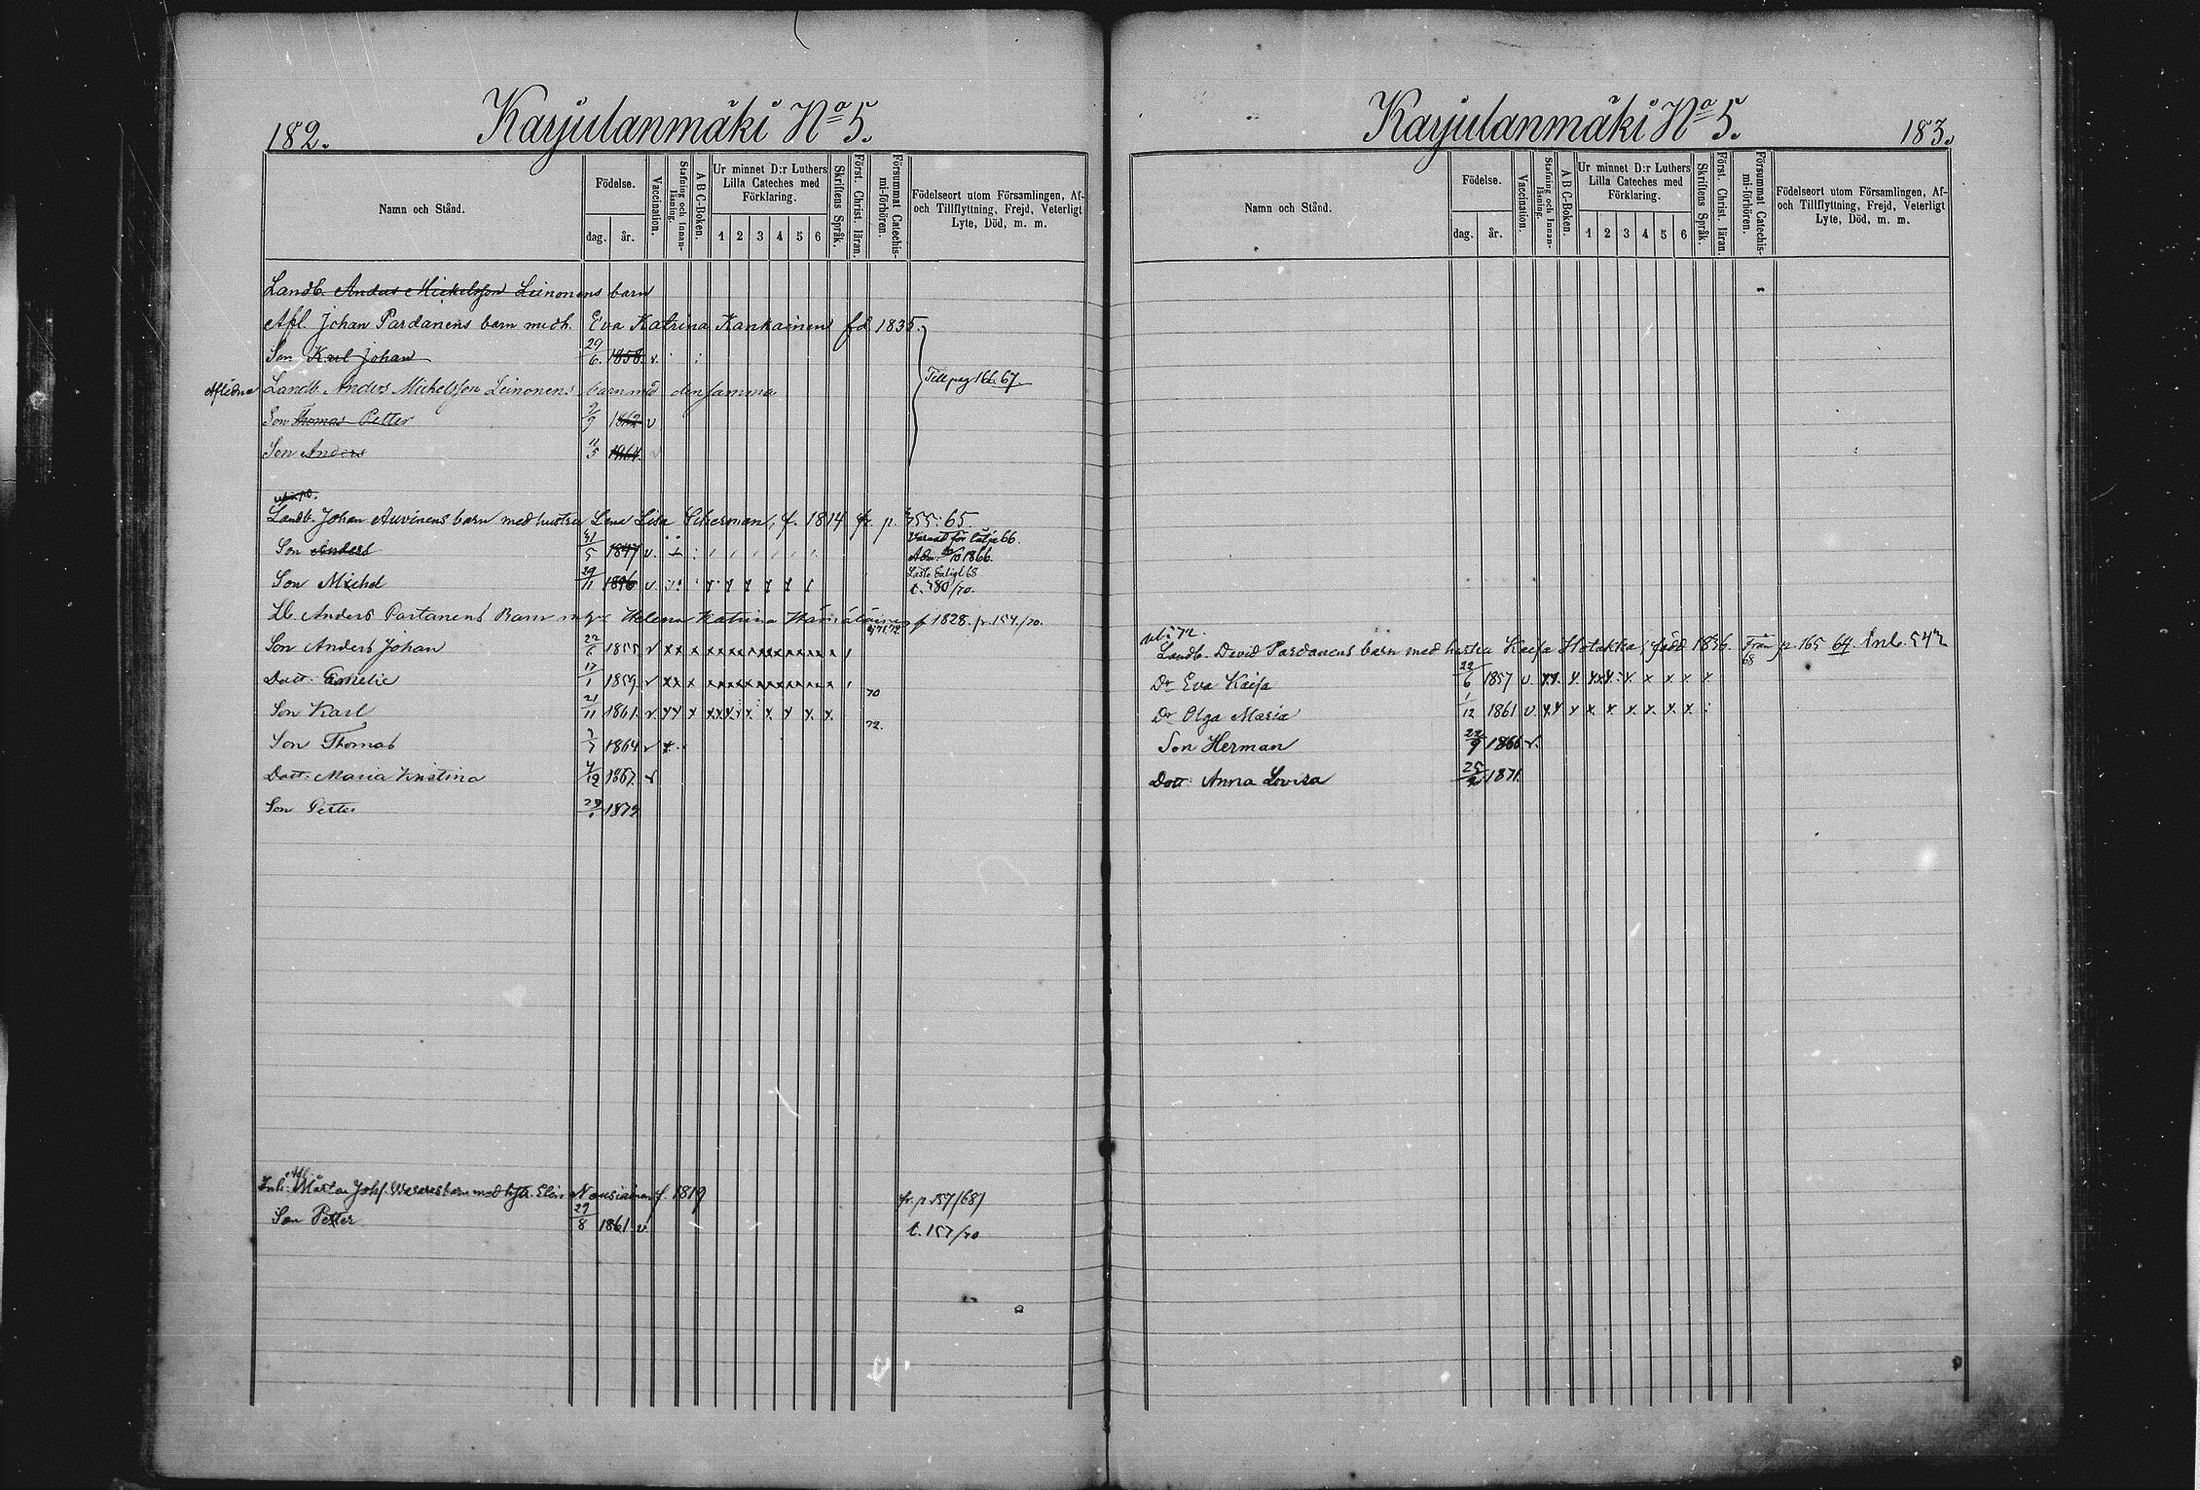 182.
Karjulanmäki No 5.
Namn och Stånd.
Födelse.
dag. år.
Vaccination.
Stafning och Innan-läsning.
A B C-Boken.
Ur minnet D:r Luthers Lilla Cateches med Förklaring.
1 2 3 4 5 6
Skriftens Språk.
Först. Christ. läran.
Försummat Catechis-mi-förhören.
Födelseort utom Församlingen, Af- och Tillflyttning, Frejd, Veterligt Lyte, Död, m. m.
Landb. Anders Mickelsson Leinonens barn
Afl. Johan Pardanens barn med h. Eva Katrina Kankainen fd 1835.
Son Karl Johan 29/6 1858 v.
Till pag 166.67
Aflidne Landb. Anders Mickelsson Leinonens barn med densamma
Son Thomas Petter 9/9 1862 v
Son Anders 11/5 1864 v
Landb. Johan Auvinens barn med hustru Lena Lisa Scherman, f. 1814 fr. p. 755. 65.
Son Anders 31/5 1847 v.
Adm. 1866.
Son Michel 29/11 1846 v
t. 780/70.
Lb. Anders Partanens Barn m. h. Helena Katrina Hämäläinen f 1828. p. 154./70.
Son Anders Johan 22/6 1855 v xx x
Dott: Amelie 17/1 1859. v xx x
70
Son Karl 21/11 1861. v. xx x
72.
Son Thomas 7/7 1864 v x
Dott. Maria Kristina 4/12 1867. v
Son Petter 29 1872
Inh. Mårten Johs. barn med hstr. Elin Nousiainen f. 1819
fr. p 157/68/
Son Petter 29/8 1861. v.
t. 157/70
Karjulanmäki No 5.
183.
Namn och Stånd.
Födelse.
dag. år.
Vaccination.
Stafning och Innan-läsning.
A B C-Boken.
Ur minnet D:r Luthers Lilla Cateches med Förklaring.
1 2 3 4 5 6
Skriftens Språk.
Först. Christ. läran.
Försummat Catechis-mi-förhören.
Födelseort utom Församlingen, Af- och Tillflyttning, Frejd, Veterligt Lyte, Död, m. m.
Landb. David Pardanens barn med hustru Kaisa Hotakka, född 1836. Från p. 165 64. Inb. 542
68
Dr Eva Kaisa 22/6 1857 v. x x. x.
Dr Olga Maria 1/12 1861 v x x x x x x x x x
Son Herman 22/9 1866 v.
Dott: Anna Lovisa 25 1871.